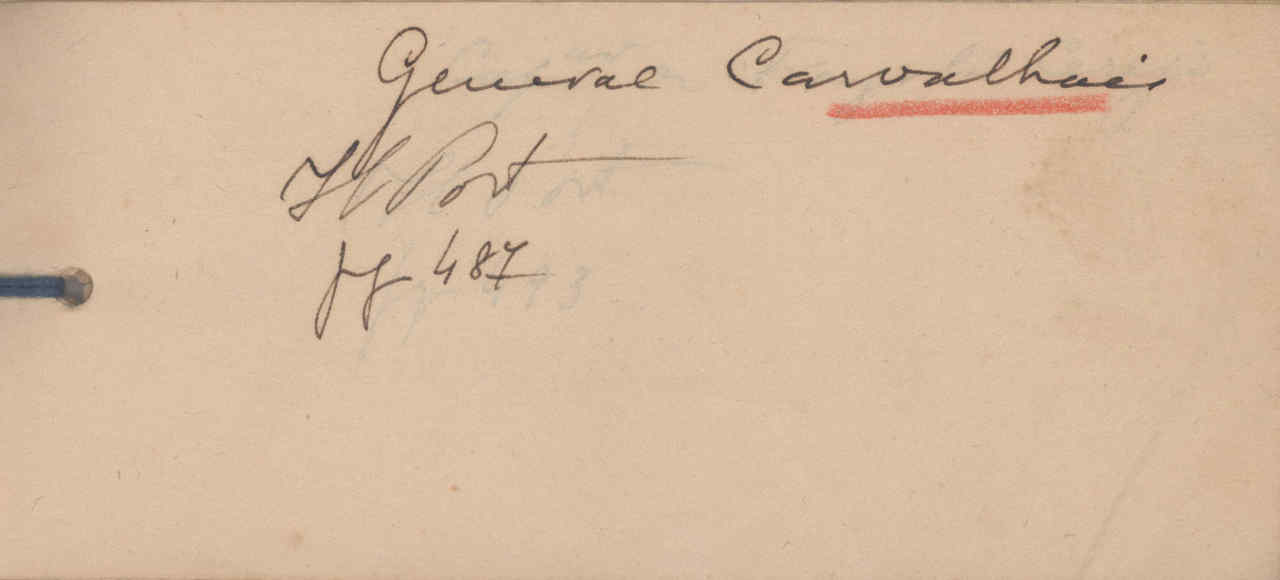 General Carvalhais
Il Port
pg 487